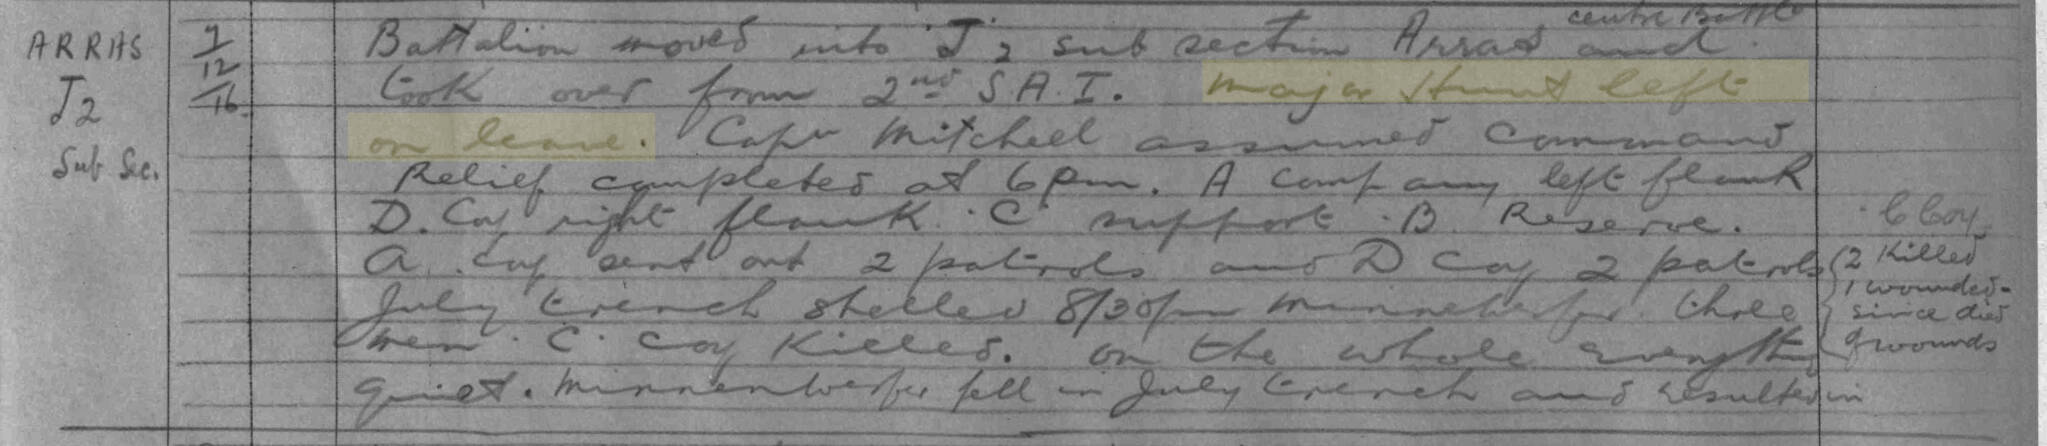 ARRAS
J2
Sub Sec.
7
12
16.
centre Battn
Battalion moved into J 2 sub section Arras and
took over from 2nd S.A.I. Major Hunt left
on leave. Capt Mitchell assumed command
Relief completed at 6 pm. A Company left flank
D. Coy right flank. C support. B Reserve.
A Coy sent out 2 patrols and D Coy 2 patrols
July trench shelled 8/30 pm Minnenwerfer. three
men. C. Coy Killed. On the whole everything
quiet. Minnenwerfer fell in July trench and resulted in
C Coy,
2 Killed
1 wounded -
since died
of wounds